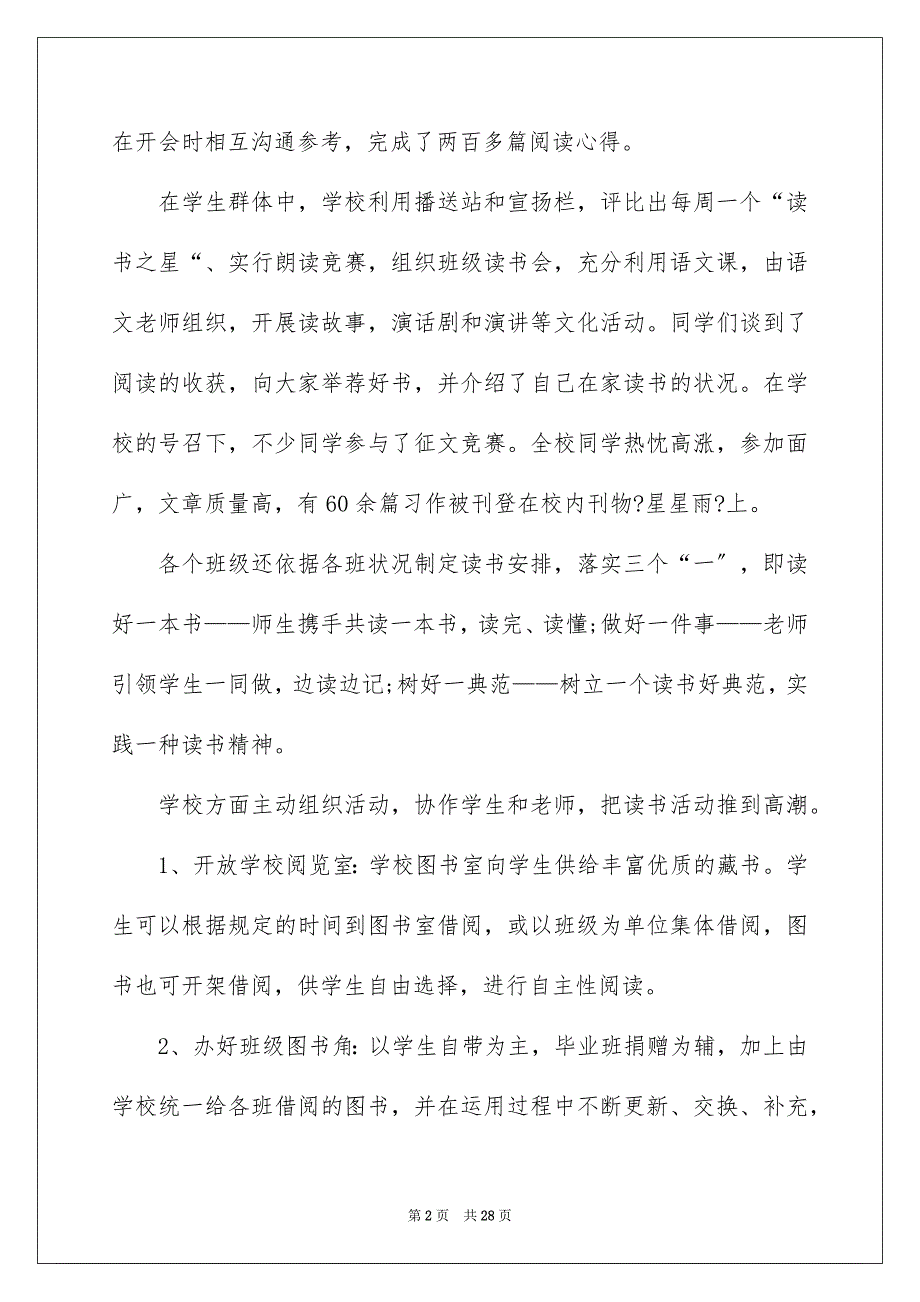 在开会时相互沟通参考，完成了两百多篇阅读心得。
在学生群体中，学校利用播送站和宣扬栏，评比出每周一个“读
书之星“、实行朗读竞赛，组织班级读书会，充分利用语文课，由语
文老师组织，开展读故事，演话剧和演讲等文化活动。同学们谈到了
阅读的收获，向大家举荐好书，并介绍了自己在家读书的状况。在学
校的号召下，不少同学参与了征文竞赛。全校同学热忱高涨，参加面
广，文章质量高，有 60 余篇习作被刊登在校内刊物?星星雨?上。
各个班级还依据各班状况制定读书安排，落实三个“一〞，即读
好一本书——师生携手共读一本书，读完、读懂;做好一件事——老师
引领学生一同做，边读边记;树好一典范——树立一个读书好典范，实
践一种读书精神。
学校方面主动组织活动，协作学生和老师，把读书活动推到高潮。
1、开放学校阅览室：学校图书室向学生供给丰富优质的藏书。学
生可以根据规定的时间到图书室借阅，或以班级为单位集体借阅，图
书也可开架借阅，供学生自由选择，进行自主性阅读。
2、办好班级图书角：以学生自带为主，毕业班捐赠为辅，加上由
学校统一给各班借阅的图书，并在运用过程中不断更新、交换、补充，
第 2 页 共 28 页